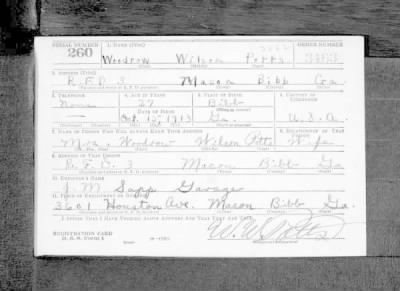 SERIAL NUMBER 1. NAME (Print) ORDER NUMBER
260 Woodrow Wilson Potts 3463
2. ADDRESS (Print)
R.F.D. 3 Macon Bibb Ga
3. TELEPHONE 4. AGE IN YEARS 5. PLACE OF BIRTH 6. COUNTRY OF CITIZENSHIP
None 27 Bibb
DATE OF BIRTH
— Oct. 15, 1913 Ga. U.S.A.
7. NAME OF PERSON WHO WILL ALWAYS KNOW YOUR ADDRESS 8. RELATIONSHIP OF THAT PERSON
Mrs. Woodrow Wilson Potts Wife
9. ADDRESS OF THAT PERSON
R.F.D. 3 Macon Bibb Ga
10. EMPLOYER'S NAME
J. M. Sapp Garage
11. PLACE OF EMPLOYMENT OR BUSINESS
3601 Houston Ave. Macon Bibb Ga.
I AFFIRM THAT I HAVE VERIFIED ABOVE ANSWERS AND THAT THEY ARE TRUE.
W. W. Potts
REGISTRATION CARD
D. S. S. Form 1